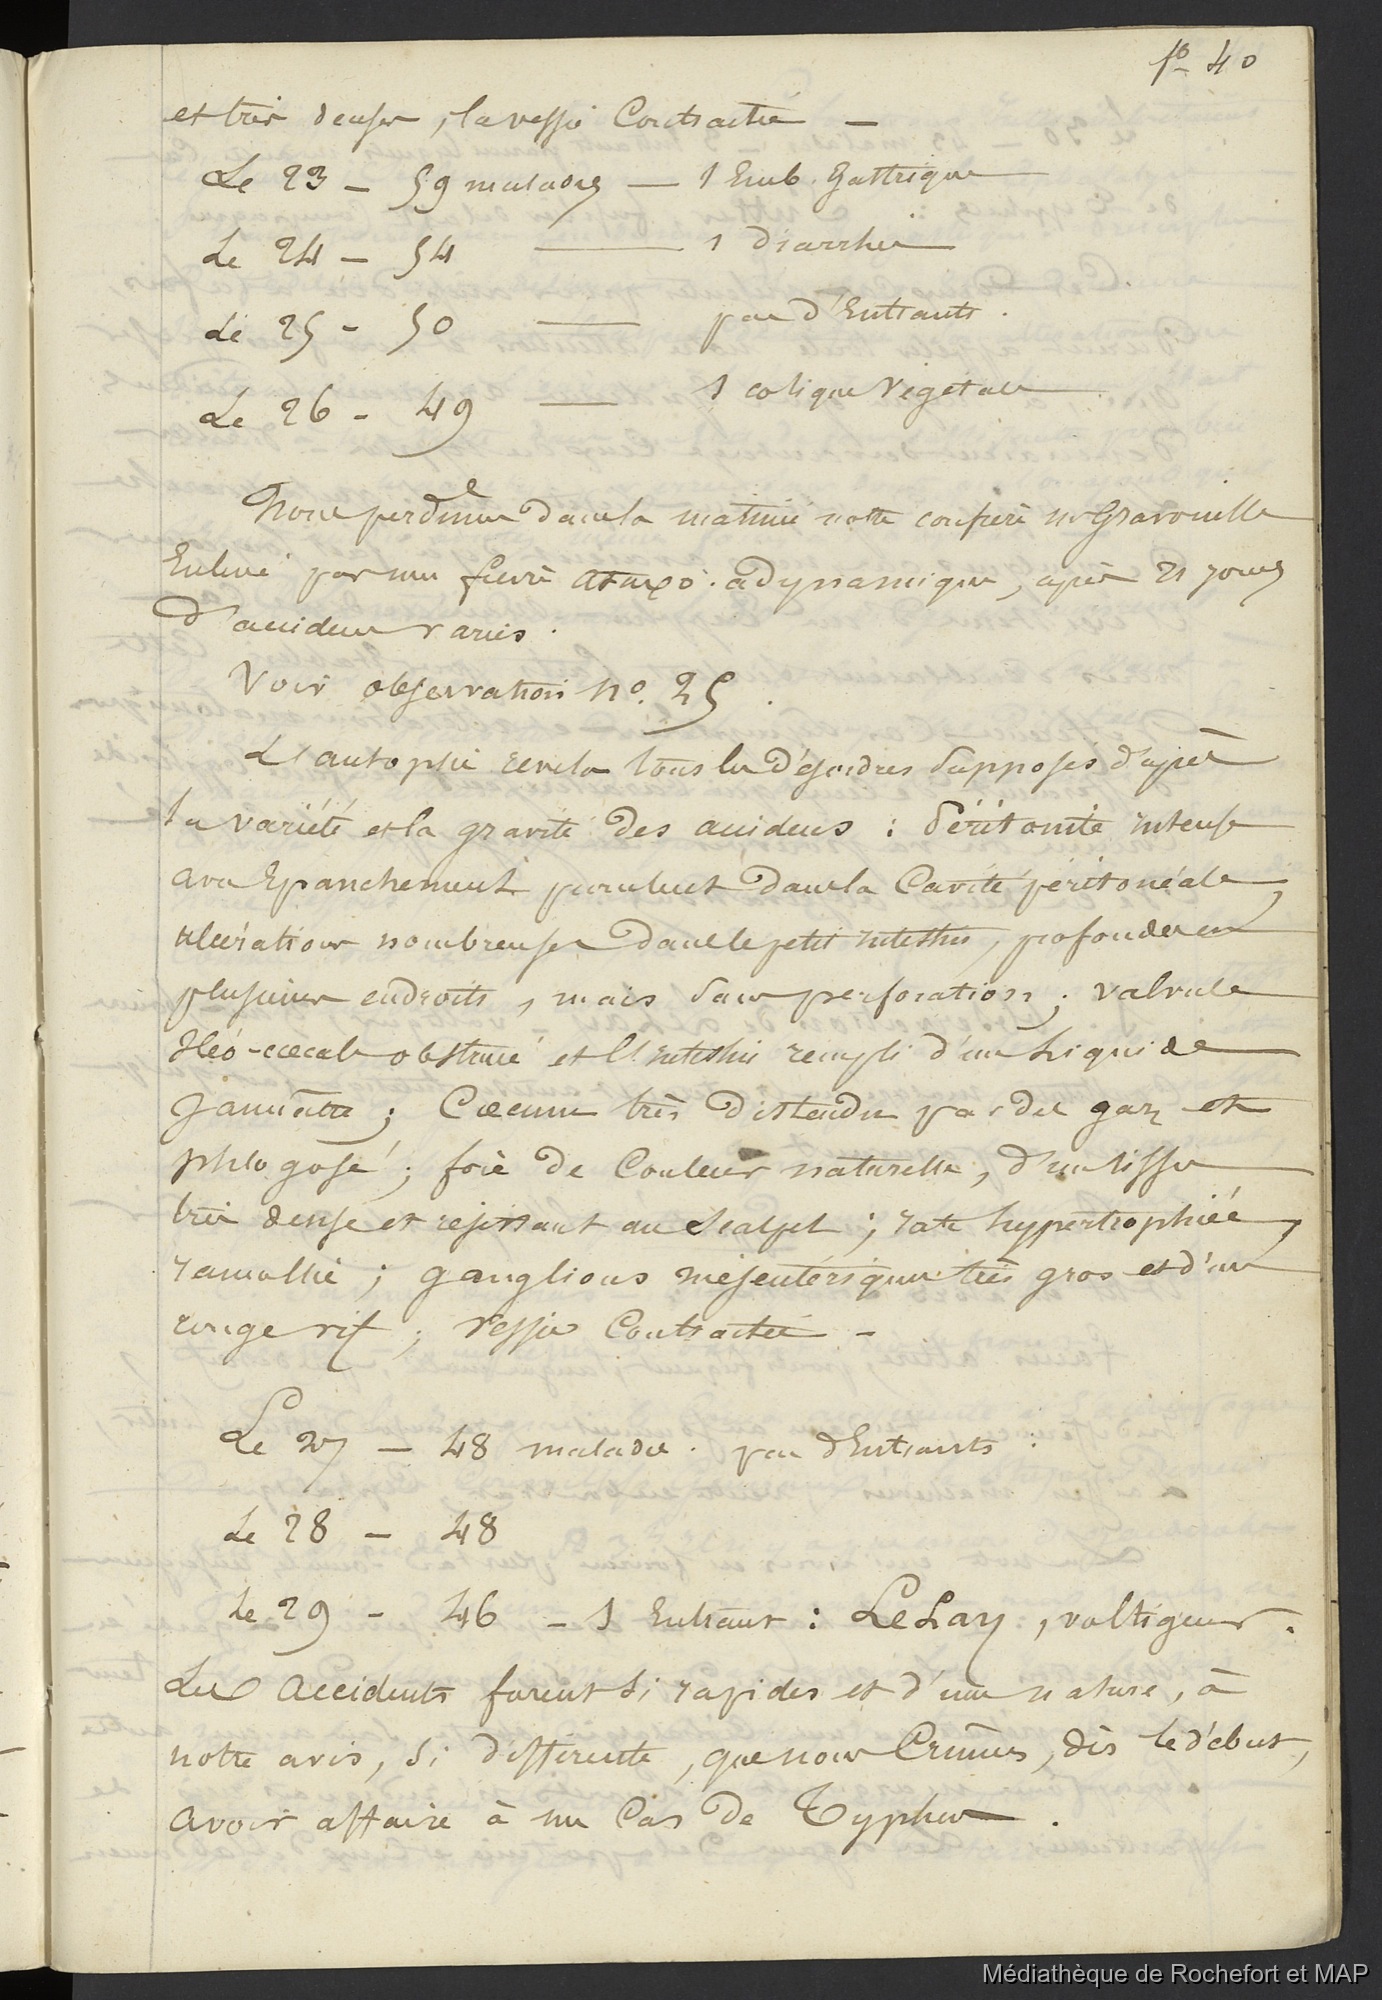 fo 40
et très denses, la vessie Contractée —
Le 23 — 59 malades — 1 Emb. Gastrique
Le 24 — 54 — 1 diarrhée
Le 25 — 50 — pas d'Entrants.
Le 26 — 49 — 1 colique Végétale
Nous perdîmes dans la matinée notre confrère Mr Gravouille
Enlevé par une fièvre ataxo-adynamique, après 21 jours
d'accidens variés.
Voir observation No. 25.
L'autopsie revela tous les désordres supposés d'après
la variété et la gravité des accidens : Péritonite intense
avec Epanchement purulent dans la Cavité péritonéale,
ulcérations nombreuses dans le petit intestin, profondes en
plusieurs endroits, mais sans perforation ; valvule
Iléo-cœcale obstruée et l'intestin rempli d'un liquide
jaunâtre ; Cœcum très distendu par des gaz et
phlogosé ; foie de Couleur naturelle, d'un tissu
très dense et résistant au scalpel ; rate hypertrophiée,
ramollie ; ganglions mésentériques très gros et d'un
rouge vif ; vessie Contractée —
Le 27 — 48 malades. pas d'Entrants :
Le 28 — 48
Le 29 — 46 — 1 Entrant : LeLay, voltigeur.
Les Accidents furent si rapides et d'une nature, à
notre avis, si différente, que nous Crûmes, dès le début,
avoir affaire à un Cas de Typhus.
Médiathèque de Rochefort et MAP